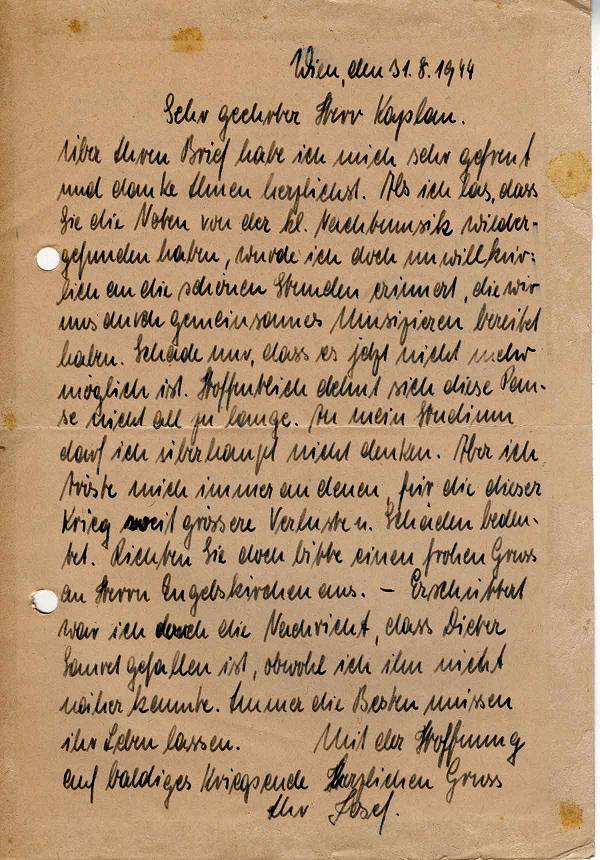 Wien, den 31.8.1944
Sehr geehrter Herr Kaplan.
Über Ihren Brief habe ich mich sehr gefreut
und danke Ihnen herzlichst. Als ich las, dass
Sie die Noten von der kl. Nachtmusik wieder-
gefunden haben, wurde ich doch unwillkür-
lich an die schönen Stunden erinnert, die wir
uns durch gemeinsames Musizieren bereitet
haben. Schade nur, dass es jetzt nicht mehr
möglich ist. Hoffentlich dehnt sich diese Pau-
se nicht all zu lange. An mein Studium
darf ich überhaupt nicht denken. Aber ich
tröste mich immer an denen, für die dieser
Krieg weit grössere Verluste u. Schäden bedeu-
tet. Richten Sie doch bitte einen frohen Gruss
an Herrn Engelskirchen aus. – Erschüttert
war ich durch die Nachricht, dass Dieter
gefallen ist, obwohl ich ihn nicht
näher kannte. Immer die Besten müssen
ihr Leben lassen. Mit der Hoffnung
auf baldiges Kriegsende herzlichen Gruss
Ihr Josef.